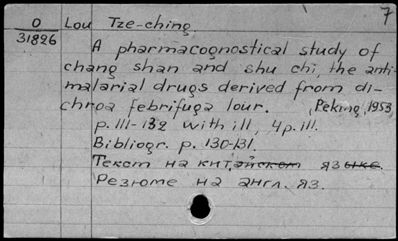 7
O Lou Tze-ching.
31826
A pharmacognostical study of
chang shan and shu chi, the anti-
malarial drugs derived from di-
chroa febrifuga lour. Peking, 1953,
p. 111-132 with ill, 4 p. ill.
Bibliogr. p. 130-131.
Текст на китайском языке.
Резюме на англ. яз.